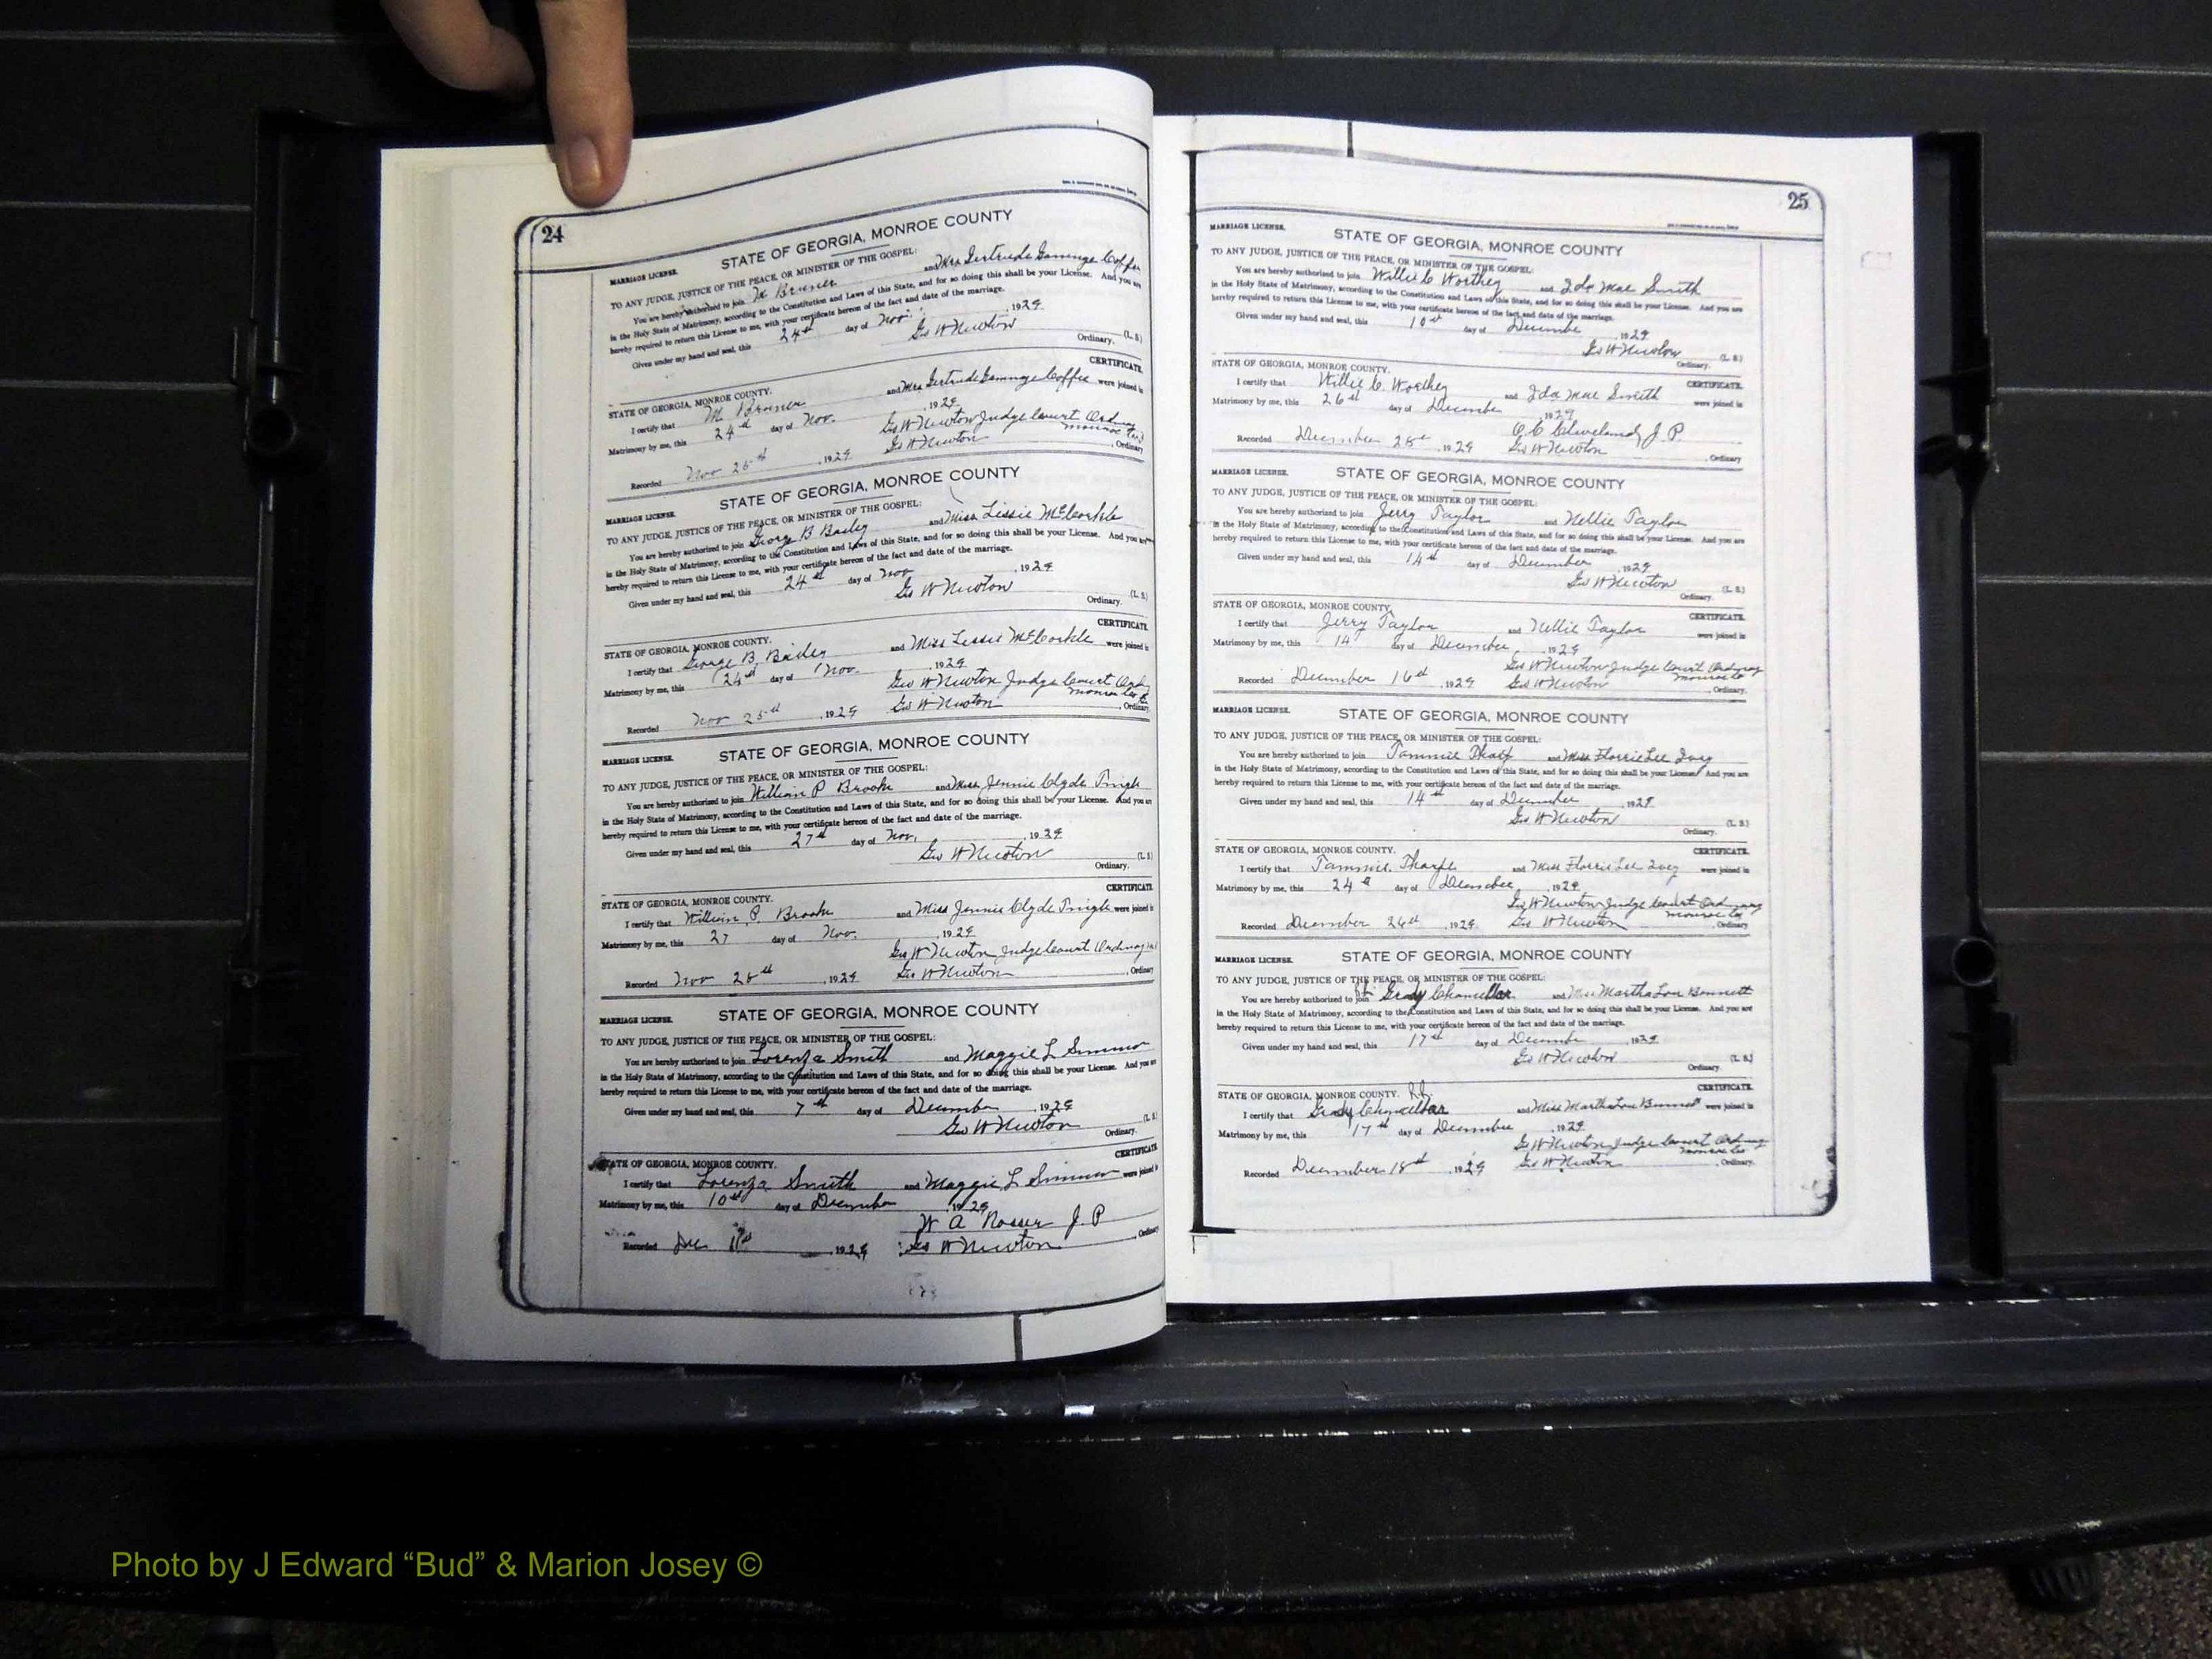 24
STATE OF GEORGIA, MONROE COUNTY
MARRIAGE LICENSE.
TO ANY JUDGE, JUSTICE OF THE PEACE, OR MINISTER OF THE GOSPEL:
You are hereby authorized to join M Bruner and Mrs Gertrude Gammage
in the Holy State of Matrimony, according to the Constitution and Laws of this State, and for so doing this shall be your License. And you are
hereby required to return this License to me, with your certificate hereon of the fact and date of the marriage.
Given under my hand and seal, this 24th day of Nov. , 1929
Geo W Newton (L. S.)
Ordinary.
CERTIFICATE.
STATE OF GEORGIA, MONROE COUNTY.
I certify that M. Bruner and Mrs Gertrude Gammage were joined in
Matrimony by me, this 24th day of Nov. , 1929
Geo W Newton Judge Court Ordinary
Recorded Nov 25th , 1929 Geo W Newton , Ordinary
STATE OF GEORGIA, MONROE COUNTY
MARRIAGE LICENSE.
TO ANY JUDGE, JUSTICE OF THE PEACE, OR MINISTER OF THE GOSPEL:
You are hereby authorized to join George B Bailey and Miss Lessie McCorkle
in the Holy State of Matrimony, according to the Constitution and Laws of this State, and for so doing this shall be your License. And you are
hereby required to return this License to me, with your certificate hereon of the fact and date of the marriage.
Given under my hand and seal, this 24th day of Nov , 1929
Geo W Newton (L. S.)
Ordinary.
CERTIFICATE
STATE OF GEORGIA, MONROE COUNTY.
I certify that George B. Bailey and Miss Lessie McCorkle were joined in
Matrimony by me, this 24th day of Nov. , 1929
Geo W Newton Judge Court
Recorded Nov 25th , 1929 Geo W Newton , Ordinary
STATE OF GEORGIA, MONROE COUNTY
MARRIAGE LICENSE.
TO ANY JUDGE, JUSTICE OF THE PEACE, OR MINISTER OF THE GOSPEL:
You are hereby authorized to join William P Brooks and Miss Jennie Clyde
in the Holy State of Matrimony, according to the Constitution and Laws of this State, and for so doing this shall be your License. And you are
hereby required to return this License to me, with your certificate hereon of the fact and date of the marriage.
Given under my hand and seal, this 27th day of Nov. , 1929
Geo W Newton (L. S.)
Ordinary.
CERTIFICATE
STATE OF GEORGIA, MONROE COUNTY.
I certify that William P. Brooks and Miss Jennie Clyde were joined in
Matrimony by me, this 27 day of Nov. , 1929
Geo W Newton Judge Court Ordinary
Recorded Nov 28th , 1929 Geo W Newton , Ordinary
STATE OF GEORGIA, MONROE COUNTY
MARRIAGE LICENSE.
TO ANY JUDGE, JUSTICE OF THE PEACE, OR MINISTER OF THE GOSPEL:
You are hereby authorized to join Lorenza Smith and Maggie L
in the Holy State of Matrimony, according to the Constitution and Laws of this State, and for so doing this shall be your License. And you are
hereby required to return this License to me, with your certificate hereon of the fact and date of the marriage.
Given under my hand and seal, this 7th day of December , 1929
Geo W Newton (L. S.)
Ordinary.
CERTIFICATE
STATE OF GEORGIA, MONROE COUNTY.
I certify that Lorenza Smith and Maggie L were joined in
Matrimony by me, this 10th day of December , 1929
W A Rosser J. P
Recorded Dec 11th , 1929 Geo W Newton , Ordinary
25
MARRIAGE LICENSE.
STATE OF GEORGIA, MONROE COUNTY
TO ANY JUDGE, JUSTICE OF THE PEACE, OR MINISTER OF THE GOSPEL:
You are hereby authorized to join Willie C Worthey and Ida Mae Smith
in the Holy State of Matrimony, according to the Constitution and Laws of this State, and for so doing this shall be your License. And you are
hereby required to return this License to me, with your certificate hereon of the fact and date of the marriage.
Given under my hand and seal, this 10th day of December , 1929
Geo W Newton (L. S.)
Ordinary.
STATE OF GEORGIA, MONROE COUNTY. CERTIFICATE.
I certify that Willie C. Worthey and Ida Mae Smith were joined in
Matrimony by me, this 26th day of December , 1929
Cleveland J. P.
Recorded December 28th , 1929 Geo W Newton , Ordinary
MARRIAGE LICENSE. STATE OF GEORGIA, MONROE COUNTY
TO ANY JUDGE, JUSTICE OF THE PEACE, OR MINISTER OF THE GOSPEL:
You are hereby authorized to join Jerry Taylor and Nellie Taylor
in the Holy State of Matrimony, according to the Constitution and Laws of this State, and for so doing this shall be your License. And you are
hereby required to return this License to me, with your certificate hereon of the fact and date of the marriage.
Given under my hand and seal, this 14th day of December , 1929
Geo W Newton (L. S.)
Ordinary.
STATE OF GEORGIA, MONROE COUNTY. CERTIFICATE.
I certify that Jerry Taylor and Nellie Taylor were joined in
Matrimony by me, this 14 day of December , 1929
Geo W Newton Judge Court Ordinary
Monroe Co
Recorded December 16th , 1929 Geo W Newton , Ordinary.
MARRIAGE LICENSE. STATE OF GEORGIA, MONROE COUNTY
TO ANY JUDGE, JUSTICE OF THE PEACE, OR MINISTER OF THE GOSPEL:
You are hereby authorized to join Tommie Tharpe and Miss Florrie Lee Ivey
in the Holy State of Matrimony, according to the Constitution and Laws of this State, and for so doing this shall be your License. And you are
hereby required to return this License to me, with your certificate hereon of the fact and date of the marriage.
Given under my hand and seal, this 14th day of December , 1929
Geo W Newton (L. S.)
Ordinary.
STATE OF GEORGIA, MONROE COUNTY. CERTIFICATE.
I certify that Tommie Tharpe and Miss Florrie Lee Ivey were joined in
Matrimony by me, this 24th day of December , 1929
Geo W Newton Judge Court Ordinary
Monroe Co
Recorded December 26th , 1929. Geo W Newton , Ordinary
MARRIAGE LICENSE. STATE OF GEORGIA, MONROE COUNTY
TO ANY JUDGE, JUSTICE OF THE PEACE, OR MINISTER OF THE GOSPEL:
You are hereby authorized to join Grady Chancellor and Miss Martha Lou Bennett
in the Holy State of Matrimony, according to the Constitution and Laws of this State, and for so doing this shall be your License. And you are
hereby required to return this License to me, with your certificate hereon of the fact and date of the marriage.
Given under my hand and seal, this 17th day of December , 1929
Geo W Newton (L. S.)
Ordinary.
STATE OF GEORGIA, MONROE COUNTY. CERTIFICATE.
I certify that Grady Chancellor and Miss Martha Lou Bennett were joined in
Matrimony by me, this 17th day of December , 1929
Geo W Newton Judge Court Ordinary
Monroe Co
Recorded December 18th , 1929 Geo W Newton , Ordinary.
Photo by J Edward “Bud” & Marion Josey ©